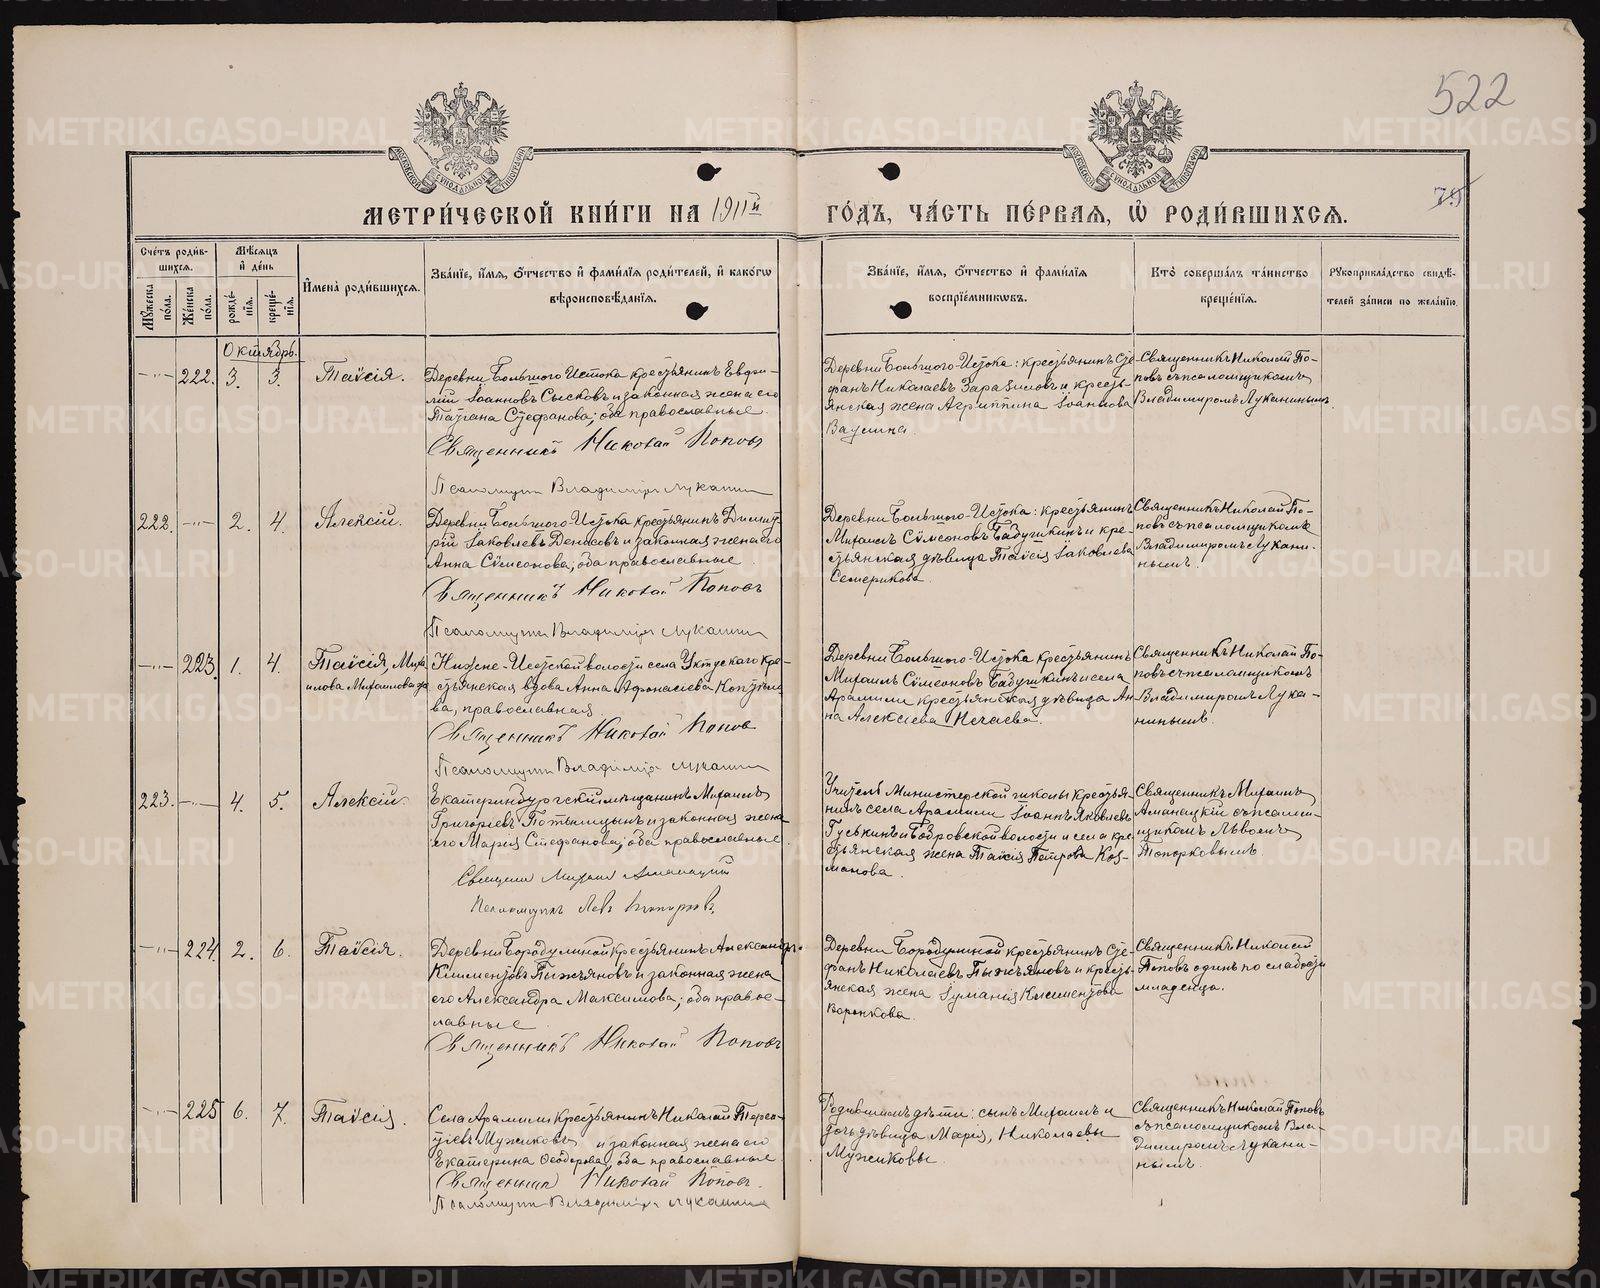 522
МОСКОВСКОЙ СѴНОДАЛЬНОЙ ТИПОГРАФІИ
МОСКОВСКОЙ СѴНОДАЛЬНОЙ ТИПОГРАФІИ
75
МЕТРИ́ЧЕСКОЙ КНИ́ГИ НА 1911й ГО́ДЪ, ЧА́СТЬ ПЕ́РВАЯ, Ѿ РОДИ́ВШИХСЯ.
Сче́тъ роди́вшихся.
Мѹ́жеска по́ла.
Же́нска по́ла.
Мѣ́сяцъ и҆ де́нь
рожде́нїя.
креще́нїя.
И҆мена̀ роди́вшихся.
Зва́нїе, и҆́мя, ѻ҆́тчество и҆ фами́лїя роди́телей, и҆ како́гѡ
вѣроисповѣ́данїя.
Зва́нїе, и҆́мя, ѻ҆́тчество и҆ фами́лїя
воспрїе́мникѡвъ.
Кто̀ соверша́лъ та́инство
креще́нїя.
Рꙋкоприкла́дство свидѣ́телей за́писи по жела́нїю.
Октябрь.
—"— 222. 3. 3. Таисія.
Деревни Большого Истока крестьянинъ Евфи-
мій Іоанновъ Сысковъ и законная жена его
Татіана Стефанова; оба православные.
Священникъ Николай Поповъ
Псаломщикъ Владиміръ Луканинъ
Деревни Большого-Истока: крестьянинъ Сте-
фанъ Николаевъ Заразиловъ и кресть-
янская жена Агриппина Іоаннова
Священникъ Николай По-
повъ съ псаломщикомъ
Владимиромъ Луканинымъ
222. —"— 2. 4. Алексій.
Деревни Большого-Истока крестьянинъ Димит-
рій Іаковлевъ Денисовъ и законная жена его
Анна Сѵмеонова; оба православные.
Священникъ Николай Поповъ
Псаломщикъ Владиміръ Луканинъ
Деревни Большого-Истока: крестьянинъ
Михаилъ Сѵмеоновъ Бабушкинъ и кре-
стьянская дѣвица Таисія Іаковлева
Семерикова.
Священникъ Николай По-
повъ съ псаломщикомъ
Владимиромъ Лукани-
нымъ.
—"— 223. 1. 4. Таисія, Миха
илова Михайлова
Нижне-Исетской волости села Уктусскаго кре-
стьянская вдова Анна Афонасіева Копытова
ва, православная.
Священникъ Николай Поповъ
Псаломщикъ Владиміръ Луканинъ
Деревни Большого-Истока крестьянинъ
Михаилъ Сѵмеоновъ Бабушкинъ и села
Арамили крестьянская дѣвица Ан-
на Алексіева Нечаева.
Священникъ Николай По-
повъ съ псаломщикомъ
Владимиромъ Лука-
нинымъ.
223. —"— 4. 5. Алексій.
Екатеринбургскій мѣщанинъ Михаилъ
Григоріевъ Потылицынъ и законная жена
его Марія Стефанова; оба православные.
Священникъ Михаилъ Аманацкій
Псаломщикъ Левъ Топорковъ
Учитель Министерской школы крестья-
нинъ села Арамили Іоаннъ Яковлевъ
Гуськинъ и Бобровской волости и села кре-
стьянская жена Таисія Петрова Кос-
манова.
Священникъ Михаилъ
Аманацкій съ псалом-
щикомъ Львомъ
Топорковымъ.
—"— 224. 2. 6. Таисія.
Деревни Бородулиной крестьянинъ Александръ
Климентовъ Пыжьяновъ и законная жена
его Александра Максимова; оба право-
славные.
Священникъ Николай Поповъ
Деревни Бородулиной крестьянинъ Сте-
фанъ Николаевъ Пыжьяновъ и кресть-
янская жена Іуліанія Климентова
Воронкова.
Священникъ Николай
Поповъ одинъ по слабости
младенца.
—"— 225 6. 7. Таисія.
Села Арамили крестьянинъ Николай Терен-
тіевъ Мужиковъ и законная жена его
Екатерина Ѳеодорова, оба православные
Священникъ Николай Поповъ.
Псаломщикъ Владиміръ Луканинъ
Родившимъ дѣти: сынъ Михаилъ и
дочь дѣвица Марія, Николаевы
Мужиковы.
Священникъ Николай Поповъ
съ псаломщикомъ Вла-
димиромъ Лукани-
нымъ.
METRIKI.GASO-URAL.RU